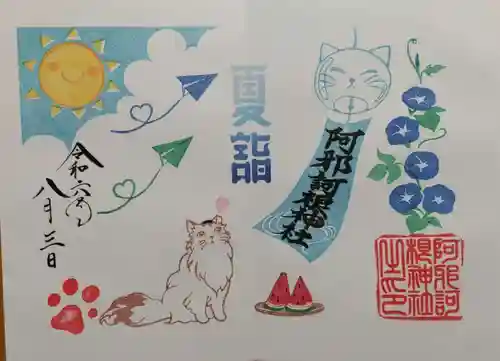 夏詣
阿邪訶根神社
令和六年
八月三日
阿邪訶
根神社
之印